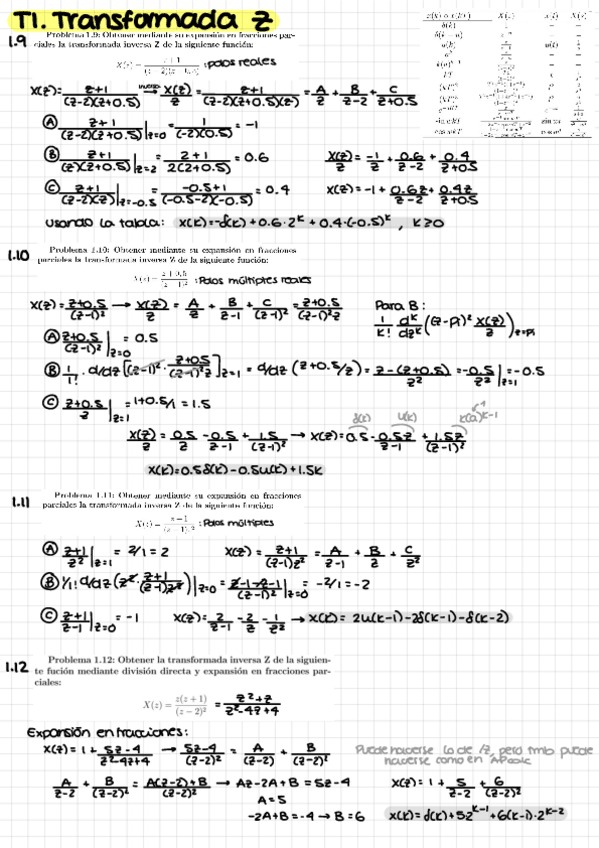 T1. Transformada Z
1.9
Problema 1.9: Obtener mediante su expansión en fracciones parciales la transformada inversa Z de la siguiente función:
: polos reales
X(z) = z+1 / (z-2)(z+0.5) → X(z)/z = z+1 / (z-2)(z+0.5)(z) = A/z + B/z-2 + C/z+0.5
Ⓐ z+1 / (z-2)(z+0.5) |z=0 = 1 / (-2)(0.5) = -1
Ⓑ z+1 / (z)(z+0.5) |z=2 = 2+1 / 2(2+0.5) = 0.6
X(z)/z = -1/z + 0.6/z-2 + 0.4/z+0.5
Ⓒ z+1 / (z-2)(z) |z=-0.5 = -0.5+1 / (-0.5-2)(-0.5) = 0.4
X(z) = -1 + 0.6z/z-2 + 0.4z/z+0.5
Usando la tabla: x(k) = -δ(k) + 0.6·2^k + 0.4·(-0.5)^k , k≥0
1.10
Problema 1.10: Obtener mediante su expansión en fracciones parciales la transformada inversa Z de la siguiente función:
X(z) = z+0,5 / (z-1)² : Polos múltiples reales
X(z) = z+0.5 / (z-1)² → X(z)/z = A/z + B/z-1 + C/(z-1)² = z+0.5 / (z-1)²z
Para B:
1/k! d^k/dz^k ((z-pi)² X(z)/z) z=pi
Ⓐ z+0.5 / (z-1)² |z=0 = 0.5
Ⓑ 1/1! · d/dz [(z-1)² · z+0.5 / (z-1)²z] z=1 = d/dz (z+0.5/z) = z-(z+0.5) / z² = -0.5/z² |z=1 = -0.5
Ⓒ z+0.5 / z |z=1 = 1+0.5/1 = 1.5
δ(k) u(k) k(a)^k-1
X(z)/z = 0.5/z - 0.5/z-1 + 1.5/(z-1)² → X(z) = 0.5 - 0.5z/z-1 + 1.5z/(z-1)²
x(k) = 0.5δ(k) - 0.5u(k) + 1.5k
1.11
Problema 1.11: Obtener mediante su expansión en fracciones parciales la transformada inversa Z de la siguiente función:
: Polos múltiples
Ⓐ z+1 / z² |z=1 = 2/1 = 2
X(z) = z+1 / (z-1)z² = A/z-1 + B/z + C/z²
Ⓑ 1/1! d/dz (z² · z+1 / (z-1)z²) |z=0 = z-1-z-1 / (z-1)² |z=0 = -2/1 = -2
Ⓒ z+1 / z-1 |z=0 = -1
X(z) = 2/z-1 - 2/z - 1/z² → x(k) = 2u(k-1) - 2δ(k-1) - δ(k-2)
1.12
Problema 1.12: Obtener la transformada inversa Z de la siguiente fución mediante división directa y expansión en fracciones parciales:
X(z) = z(z+1) / (z-2)² = z²+z / z²-4z+4
Expansión en fracciones:
X(z) = 1 + 5z-4 / z²-4z+4 → 5z-4 / (z-2)² = A/(z-2) + B/(z-2)²
Puede hacerse lo de /z, pero tmb puede hacerse como en
A/z-2 + B/(z-2)² = A(z-2)+B / (z-2)² → Az-2A+B = 5z-4
X(z) = 1 + 5/z-2 + 6/(z-2)²
A=5
-2A+B=-4 → B=6
x(k) = δ(k) + 5·2^k-1 + 6(k-1)·2^k-2